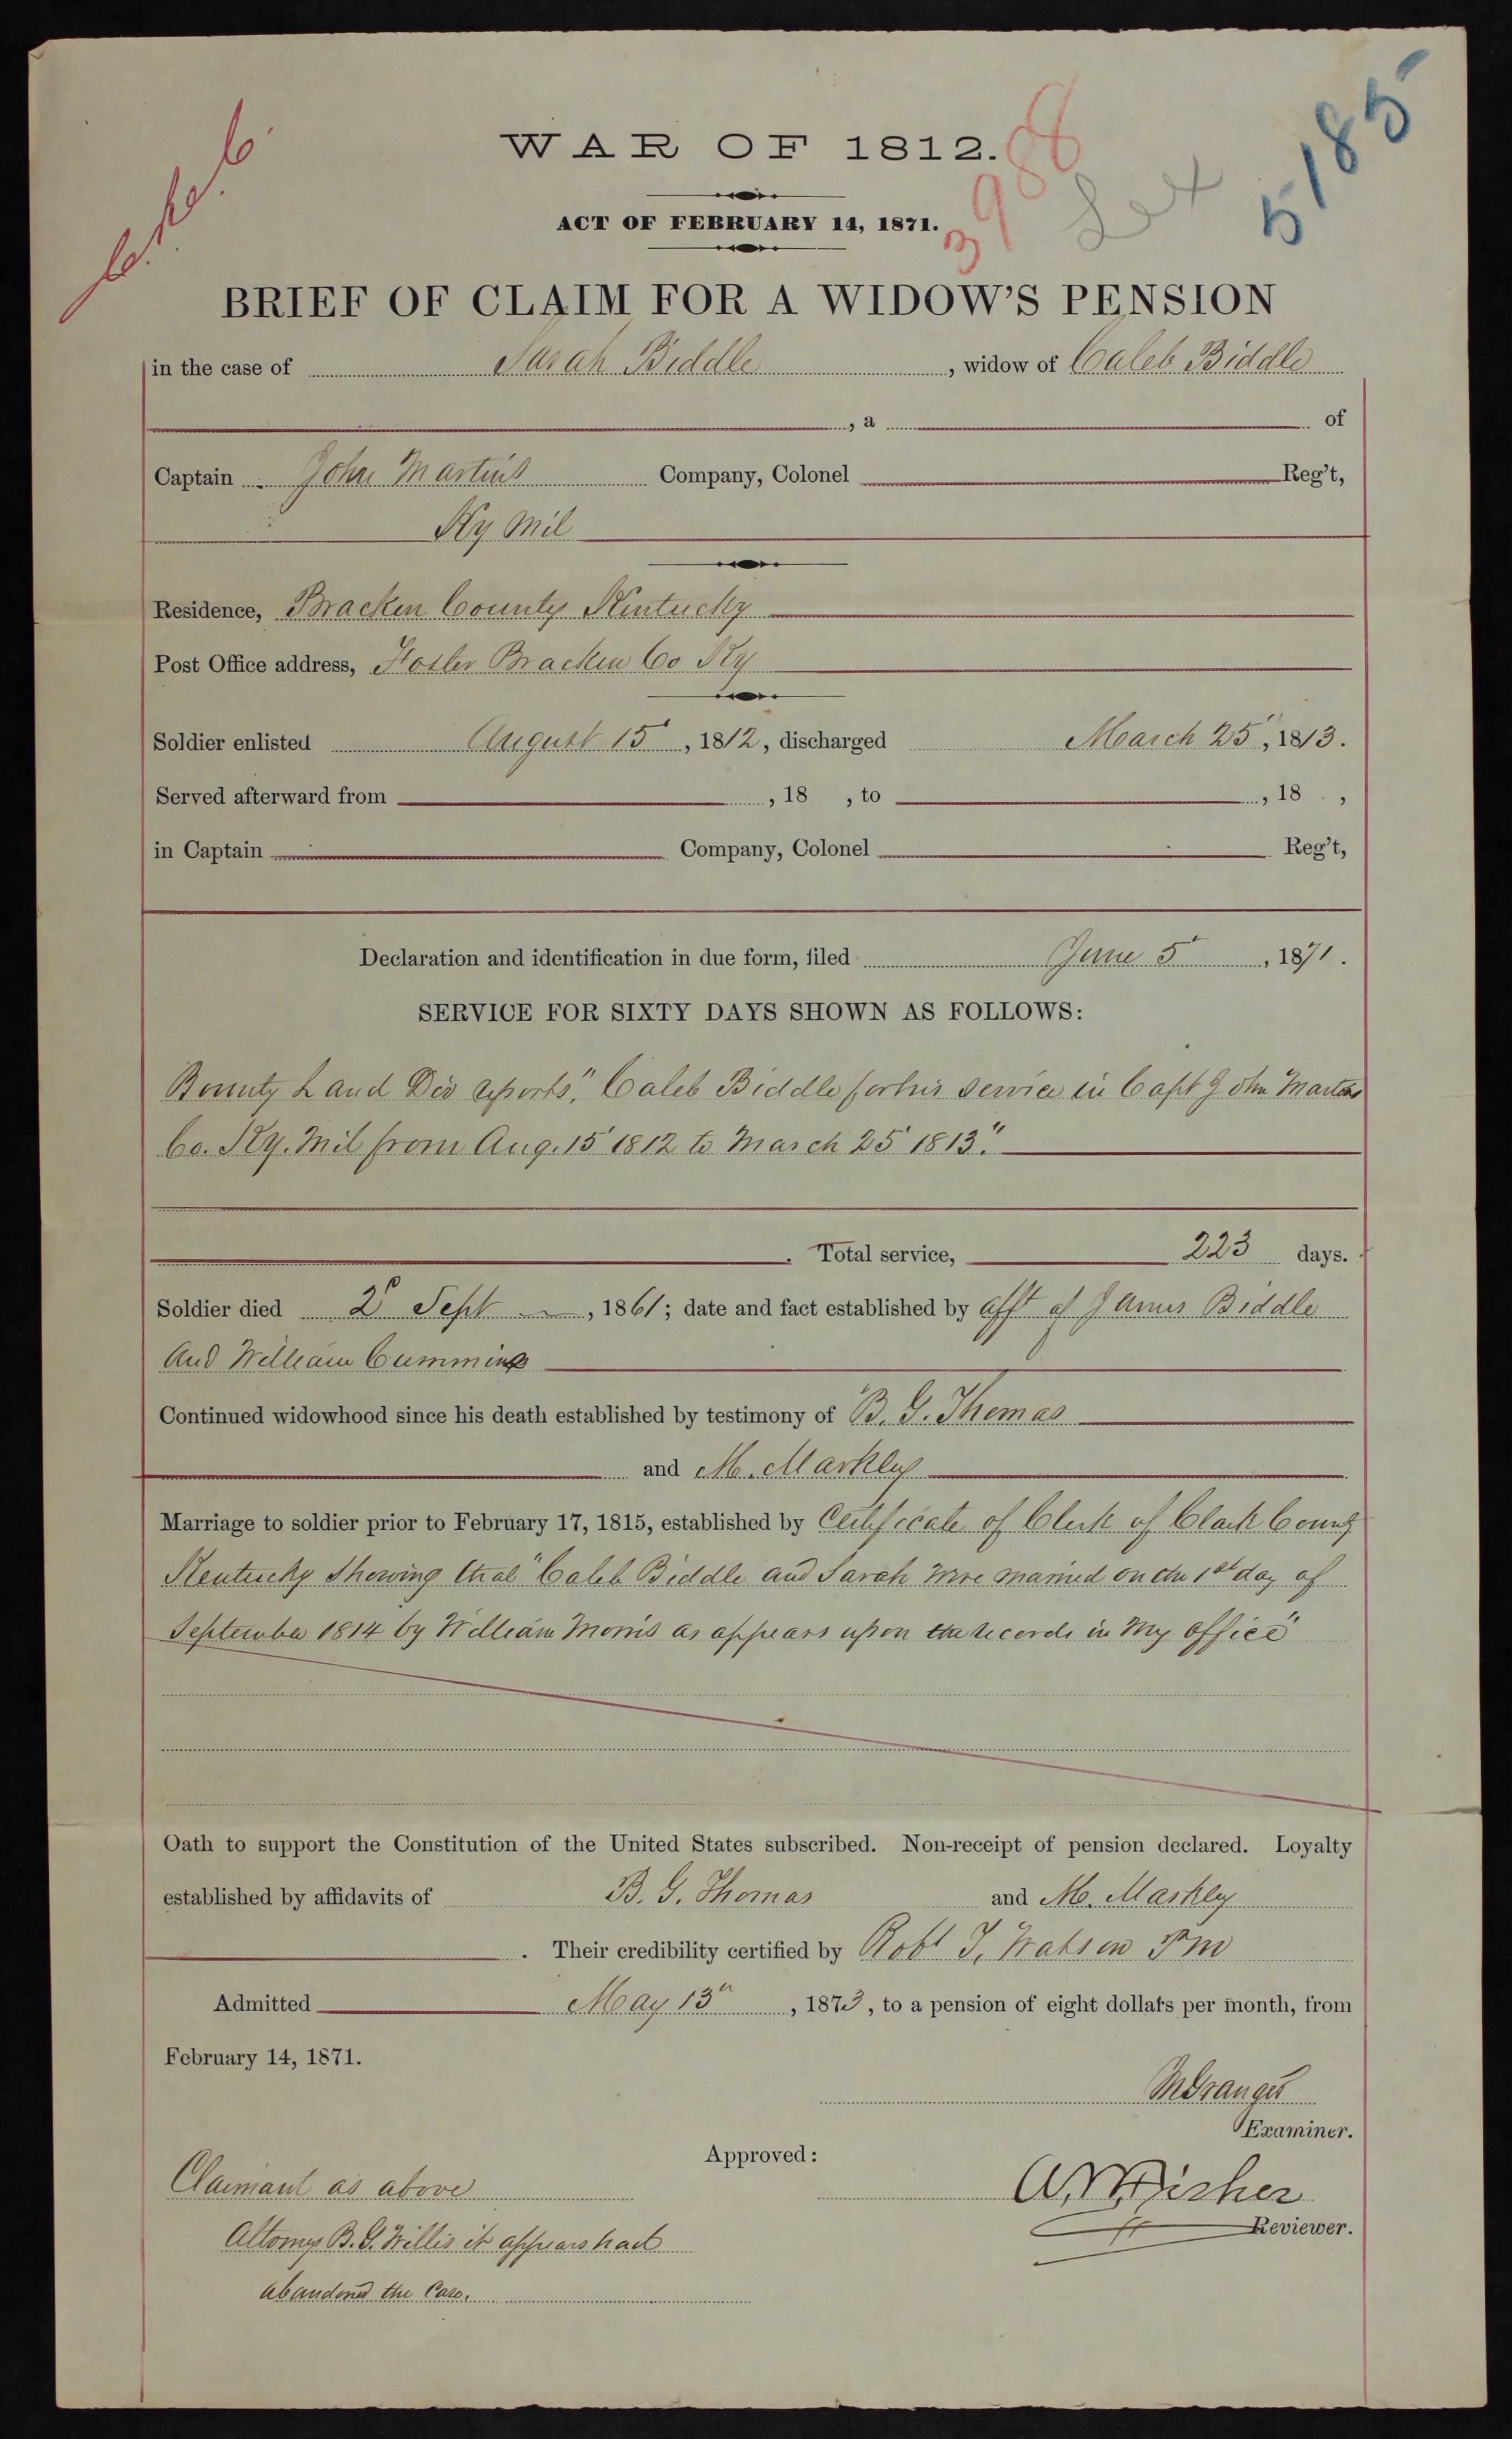 WAR OF 1812.
5185
ACT OF FEBRUARY 14, 1871.
BRIEF OF CLAIM FOR A WIDOW'S PENSION
in the case of Sarah Biddle, widow of Caleb Biddle
, a of
Captain John Martins Company, Colonel Reg't,
Ky Mil
Residence, Bracken County Kentucky
Post Office address, Foster Bracken Co Ky
Soldier enlisted August 15, 1812, discharged March 25, 1813.
Served afterward from , 18 , to , 18 ,
in Captain Company, Colonel Reg't,
Declaration and identification in due form, filed June 5, 1871.
SERVICE FOR SIXTY DAYS SHOWN AS FOLLOWS:
Bounty Land Div reports "Caleb Biddle for his service in Capt John Martins
Co. Ky. Mil from Aug. 15 1812 to March 25 1813."
Total service, 223 days.
Soldier died 2d Sept, 1861; date and fact established by afft of James Biddle
And William Cummins
Continued widowhood since his death established by testimony of B. G. Thomas
and M. Markley
Marriage to soldier prior to February 17, 1815, established by Certificate of Clerk of Clark County
Kentucky Showing that "Caleb Biddle and Sarah were married on the 1st day of
September 1814 by William Morris as appears upon the records in my office"
Oath to support the Constitution of the United States subscribed. Non-receipt of pension declared. Loyalty
established by affidavits of B. G. Thomas and M. Markley
. Their credibility certified by Robt T. Watson PM
Admitted May 13th, 1873, to a pension of eight dollars per month, from
February 14, 1871.
Granger
Examiner.
Approved:
Claimant as above
Fisher
Reviewer.
Attorney B. G. Willis it appears had
abandoned the Case.